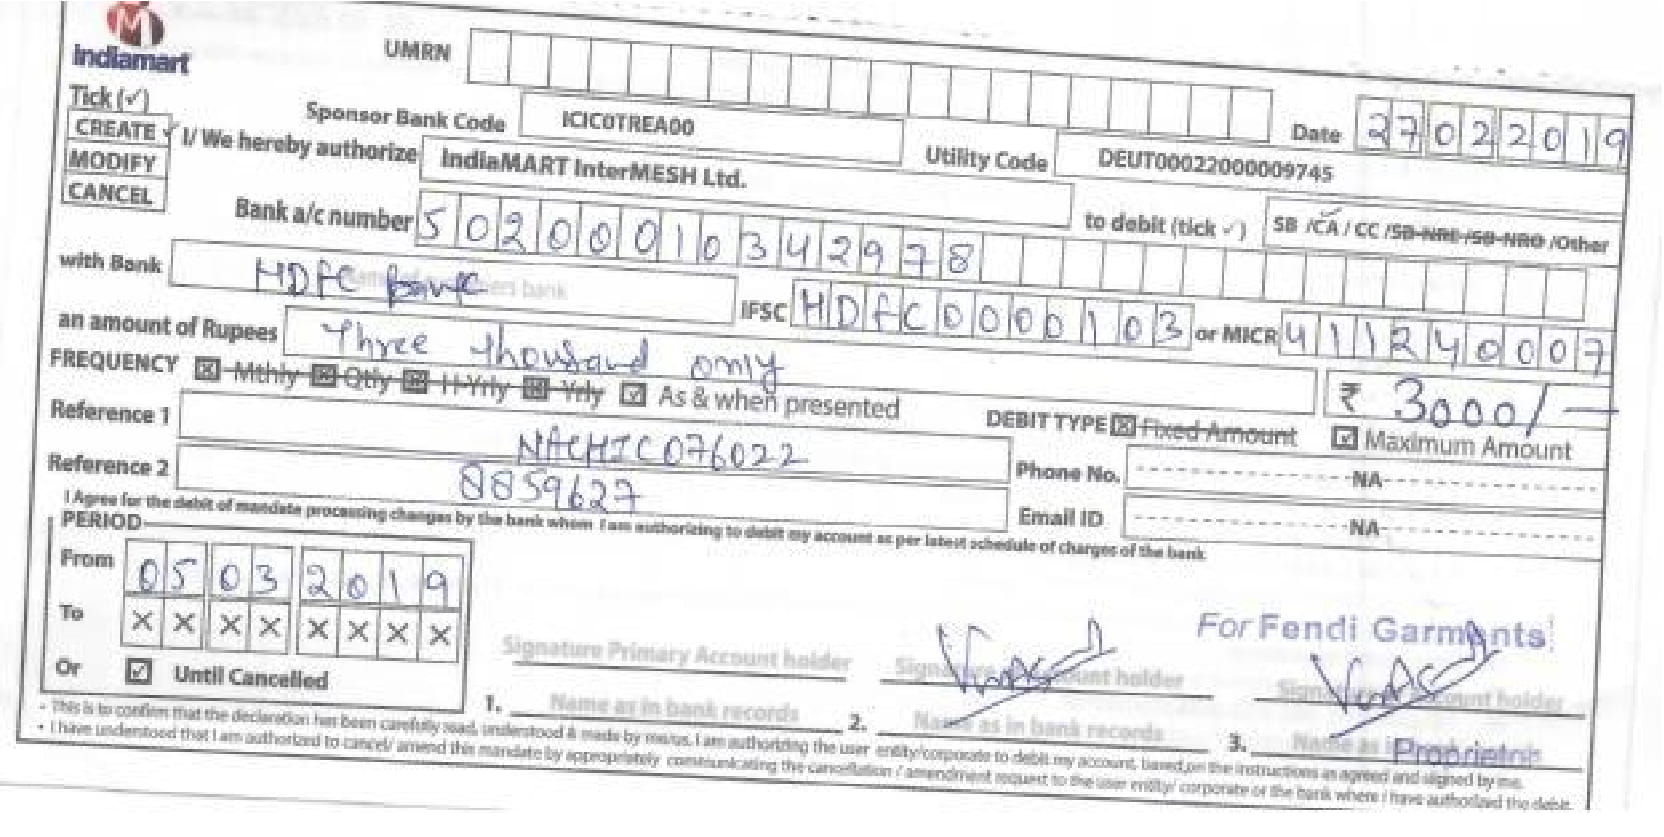 Indiamart
UMRN
Tick (✓)
CREATE ✓
MODIFY
CANCEL
Sponsor Bank Code ICIC0TREA00 Utility Code DEUT00022000009745 Date 27022019
I/ We hereby authorize IndiaMART InterMESH Ltd. to debit (tick ✓) SB /CA / CC /SB-NRE /SB-NRO /Other
Bank a/c number 50200010342978
with Bank HDFC Bank IFSC HDFC0000103 or MICR 411240007
an amount of Rupees Three thousand only ₹ 3000/-
FREQUENCY ☒ Mthly ☒ Qtly ☒ H-Yrly ☒ Yrly ☑ As & when presented DEBIT TYPE ☒ Fixed Amount ☑ Maximum Amount
Reference 1 NACHIC076022 Phone No. NA
Reference 2 8859627 Email ID NA
I Agree for the debit of mandate processing charges by the bank whom I am authorizing to debit my account as per latest schedule of charges of the bank
PERIOD
From 05032019
To XXXXXXXX
Or ☑ Until Cancelled
For Fendi Garments
Signature Primary Account holder Signature Account holder Signature Account holder
1. Name as in bank records 2. Name as in bank records 3. Name as in
Proprietor
• This is to confirm that the declaration has been carefully read, understood & made by me/us. I am authorizing the user entity/corporate to debit my account, based on the instructions as agreed and signed by me.
• I have understood that I am authorized to cancel/ amend this mandate by appropriately communicating the cancellation / amendment request to the user entity/ corporate or the bank where I have authorized the debit.